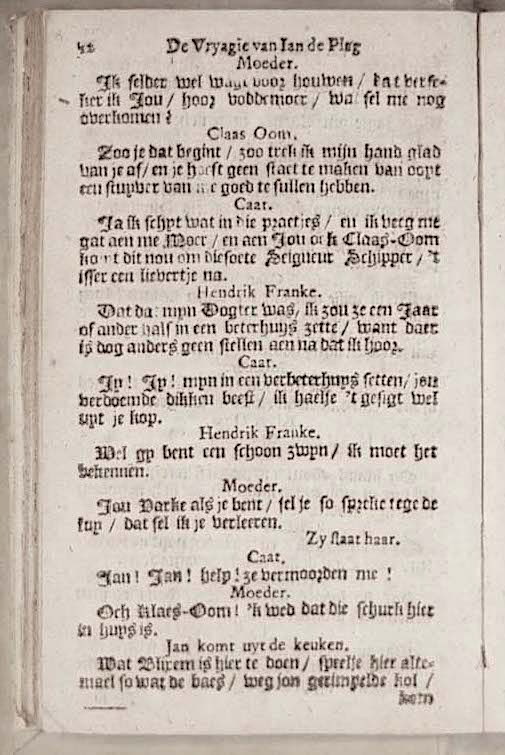 42 De Vryagie van Ian de Plug
Moeder.
Ik selder wel wagt voor houwen / dat verse-
ker ik Jou / hoor voddemoer / wa sel me nog
overkomen?
Claas Oom.
Zoo je dat begint / zoo trek ik mijn hand glad
van je af / en je hoeft geen staet te maken van oopt
een stuyver van me goed te sullen hebben.
Caat.
Ja ik schyt wat in die practjes / en ik veeg me
gat aen me Moer / en aen Jou ook Claas-Oom
komt dit nou om die soete Seigneur Schipper / 't
isser een lievertje na.
Hendrik Franke.
Dat dat myn Dogter was, ik zou ze een Jaar
of ander half in een beterhuys zette / want daer
is dog anders geen stellen aen na dat ik hoor.
Caat.
Jy! Jy! myn in een verbeterhuys setten / jou
verdoemde dikken beest / ik haelje 't gesigt wel
uyt je kop.
Hendrik Franke.
Wel gy bent een schoon zwyn / ik moet het
bekennen.
Moeder.
Jou Varke als je bent / sel je so spreke tege de
luy / dat sel ik je verleeren.
Zy slaat haar.
Caat.
Jan! Jan! help! ze vermoorden me!
Moeder.
Och Klaes-Oom! 'k wed dat die schurk hier
in huys is.
Jan komt uyt de keuken.
Wat Blixem is hier te doen / speelje hier alte-
mael so wat de baes / weg jou gerimpelde kol /
kom